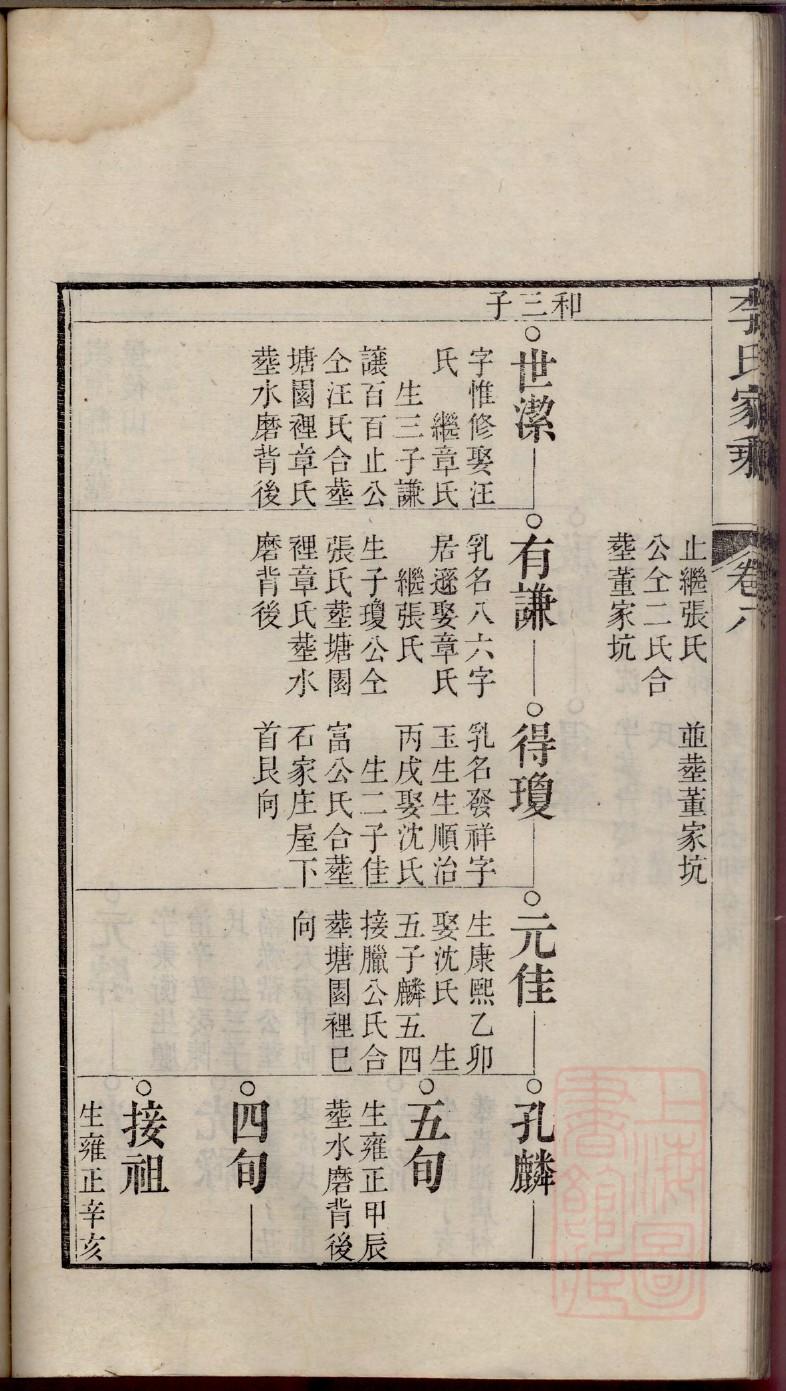 李氏家乘
卷六
止繼張氏
公仝二氏合
塟董家坑
並塟董家坑
和三子
世潔
字惟修娶汪
氏　繼章氏
生三子謙
讓百百止公
仝汪氏合塟
塘園裡章氏
塟水磨背後
有謙
乳名八六字
居遜娶章氏
繼張氏
生子瓊公仝
張氏塟塘園
裡章氏塟水
磨背後
得瓊
乳名發祥字
玉生生順治
丙戌娶沈氏
生二子佳
富公氏合塟
石家庄屋下
首艮向
元佳
生康熙乙卯
娶沈氏　生
五子麟五四
接臘公氏合
塟塘園裡巳
向
孔麟
五旬
生雍正甲辰
塟水磨背後
四旬
接祖
生雍正辛亥
上海圖
書館藏